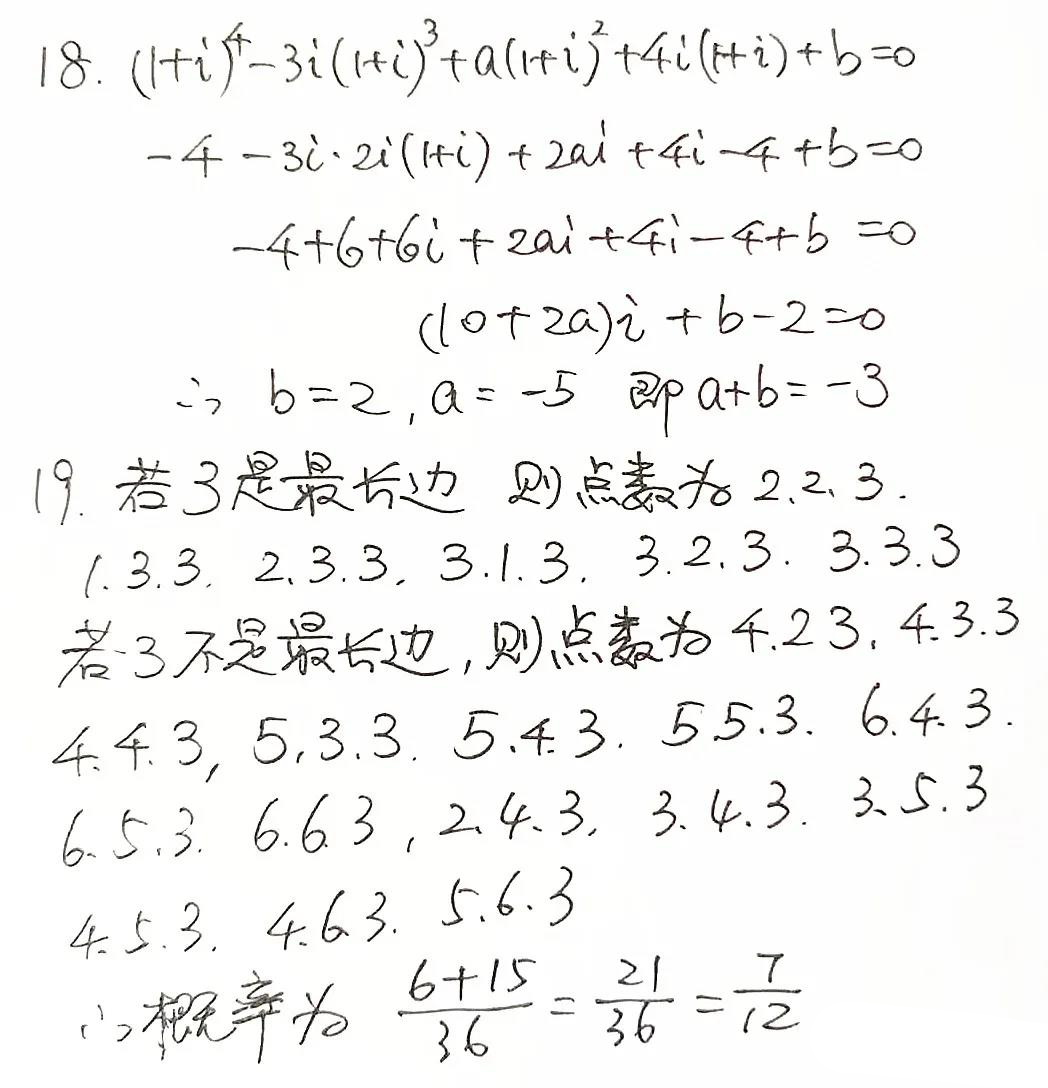 18. (1+i)⁴-3i(1+i)³+a(1+i)²+4i(1+i)+b=0
-4-3i·2i(1+i)+2ai+4i-4+b=0
-4+6+6i+2ai+4i-4+b=0
(10+2a)i+b-2=0
∴ b=2, a=-5 即 a+b=-3
19. 若3是最长边 则点数为 2.2.3.
1.3.3. 2.3.3. 3.1.3. 3.2.3. 3.3.3
若3不是最长边,则点数为 4.2 3. 4.3.3
4.4.3, 5.3.3. 5.4.3. 5.5.3. 6.4.3.
6.5.3. 6.6.3, 2.4.3. 3.4.3. 3.5.3
4.5.3. 4.6.3. 5.6.3
∴概率为 (6+15)/36 = 21/36 = 7/12